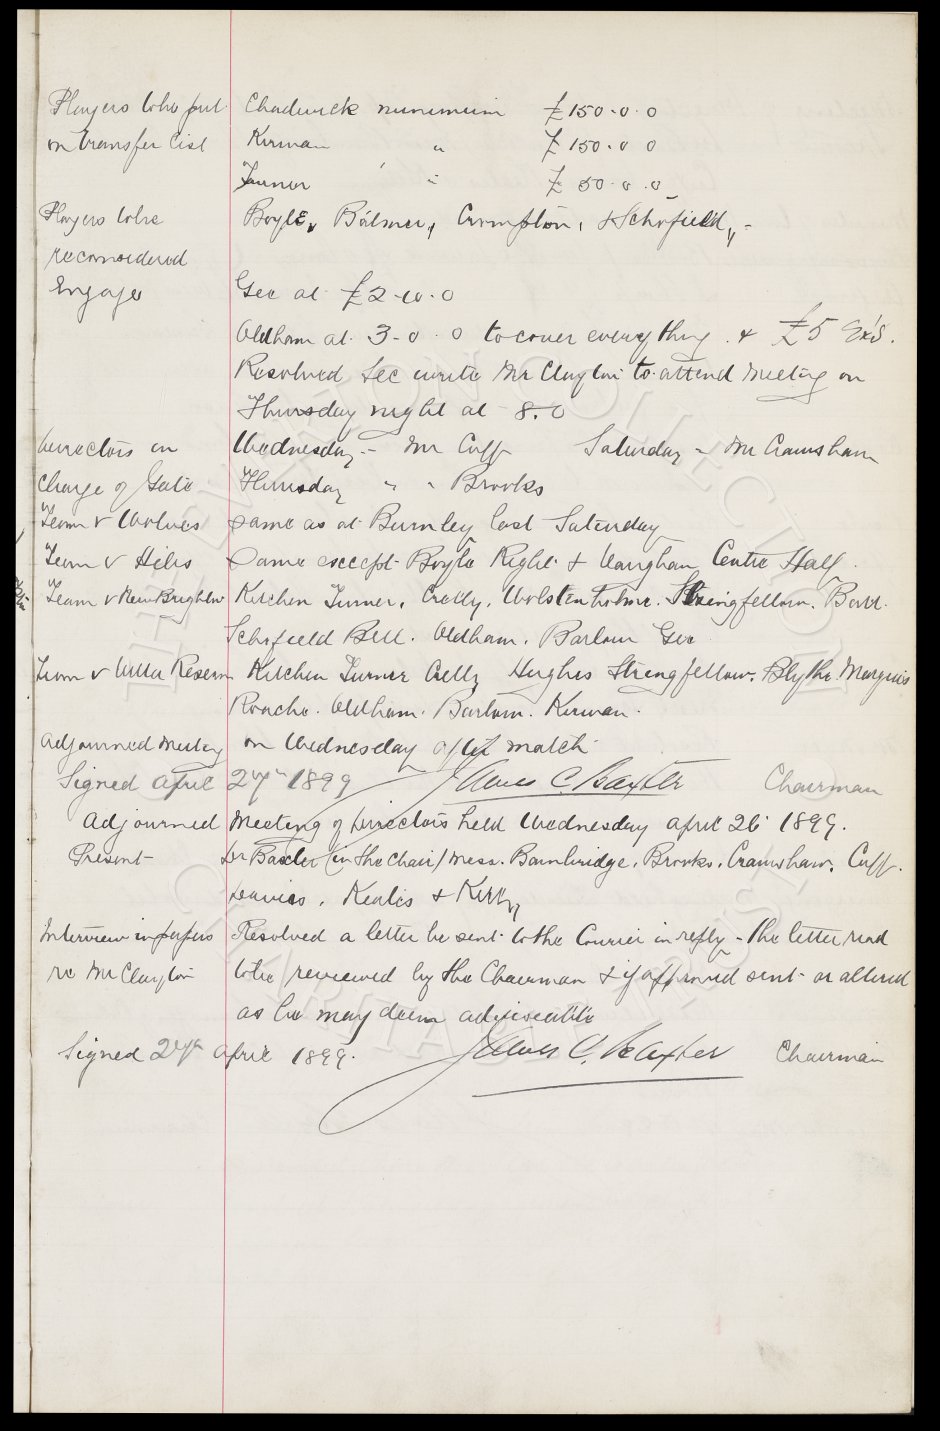 Players to be put Chadwick minimum £150-0-0
on transfer list Kirwan " £150-0-0
Turner " £50-0-0
Players to be Boyle, Balmer, Crompton, & Schofield, -
reconsidered
Engage Gee at £2-10-0
Oldham at 3-0-0 to cover everything & £5 Ex's.
Resolved Sec write Mr Clayton to attend Meeting on
Thursday night at 8.0
Directors in Wednesday - Mr Cuff Saturday - Mr Crawshaw
Charge of Gate Thursday " " Brooks
Team v Wolves Same as at Burnley last Saturday
Team v Hibs Same except Boyle Right & Vaughan Centre Half.
Team v New Brighton Kitchen Turner, Crelly, Wolstenholme. Stringfellow. Barr.
Schofield Bell. Oldham. Barlow Gee
Team v Villa Reserve Kitchen Turner Crelly Hughes Stringfellow. Blythe. Marquis
Roache. Oldham. Barlow. Kirwan.
Adjourned Meeting on Wednesday after match
Signed April 27th 1899 James C. Baxter Chairman
Adjourned Meeting of Directors held Wednesday April 26th 1899.
Present Dr Baxter (in the Chair) Mess. Bainbridge. Brooks. Crawshaw. Cuff.
Davies. Keates & Kirby
Interview in papers Resolved a letter be sent to the Courier in reply - the letter read
re Mr Clayton to be reviewed by the Chairman & if approved sent or altered
as he may deem adviseable
Signed 27th April 1899. James C. Baxter Chairman